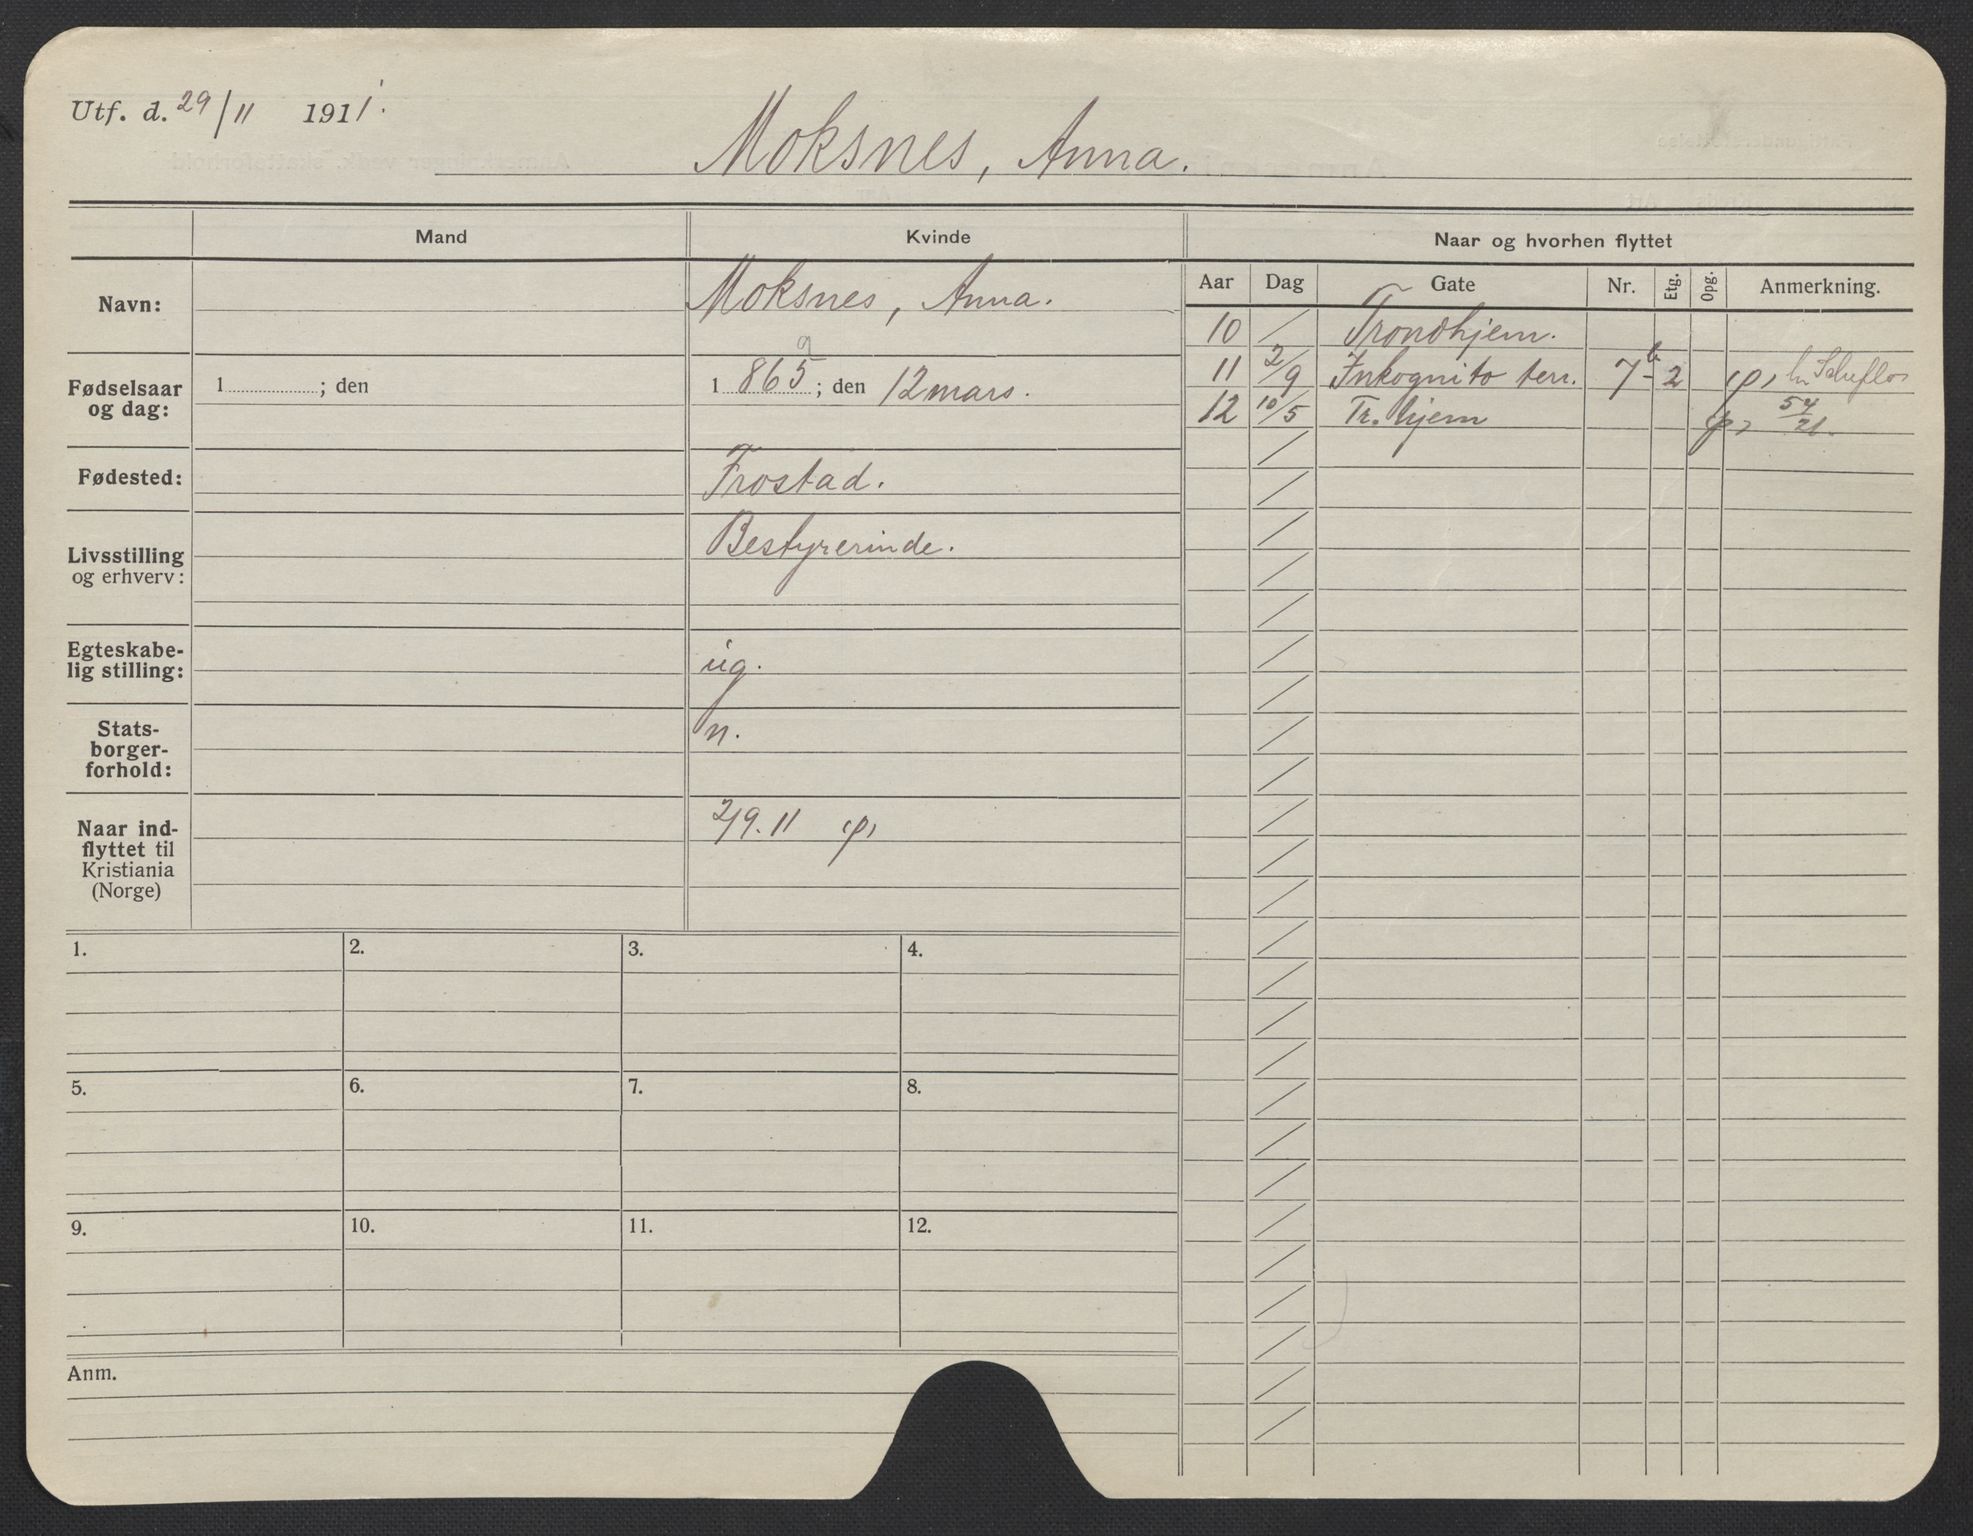 Utf. d. 29/11 1911.
Moksnes, Anna.
Mand
Kvinde
Naar og hvorhen flyttet
Navn:
Moksnes, Anna.
Aar Dag Gate Nr. Etg. Opg. Anmerkning.
10 / Trondhjem.
11 2/9 Inkognito terr. 7 b - 2 φ,
12 10/5 Tr.hjem φ, 54/21.
9
Fødselsaar
og dag:
1 ; den
1 865 ; den 12 mars.
Fødested:
Frostad.
Livsstilling
og erhverv:
Bestyrerinde.
Egteskabe-
lig stilling:
ug.
Stats-
borger-
forhold:
n.
Naar ind-
flyttet til
Kristiania
(Norge)
2/9. 11 φ,
1. 2. 3. 4.
5. 6. 7. 8.
9. 10. 11. 12.
Anm.